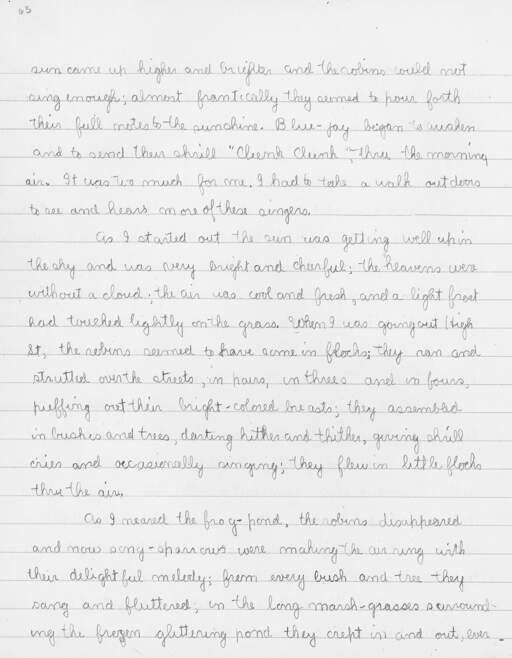 65
sun came up higher and brighter and the robins could not
sing enough; almost frantically they seemed to pour forth
their full notes to the sunshine. Blue-jay began to awaken
and to send their shrill "Cleenk Cleenk" thru the morning
air. It was too much for me. I had to take a walk outdoors
to see and hear more of these singers.
As I started out the sun was getting well up in
the sky and was very bright and cheerful; the heavens were
without a cloud; the air was cool and fresh, and a light frost
had touched lightly on the grass. When I was going out High
St, the robins seemed to have come in flocks; they ran and
strutted over the streets, in pairs, in threes and in fours,
puffing out their bright-colored breasts; they assembled
in bushes and trees, darting hither and thither, giving shrill
cries and occasionally singing; they flew in little flocks
thru the air.
As I neared the frog-pond, the robins disappeared
and now song-sparrows were making the air ring with
their delightful melody; from every bush and tree they
sang and fluttered; in the long marsh-grasses surround-
ing the frozen glittering pond they crept in and out, ever